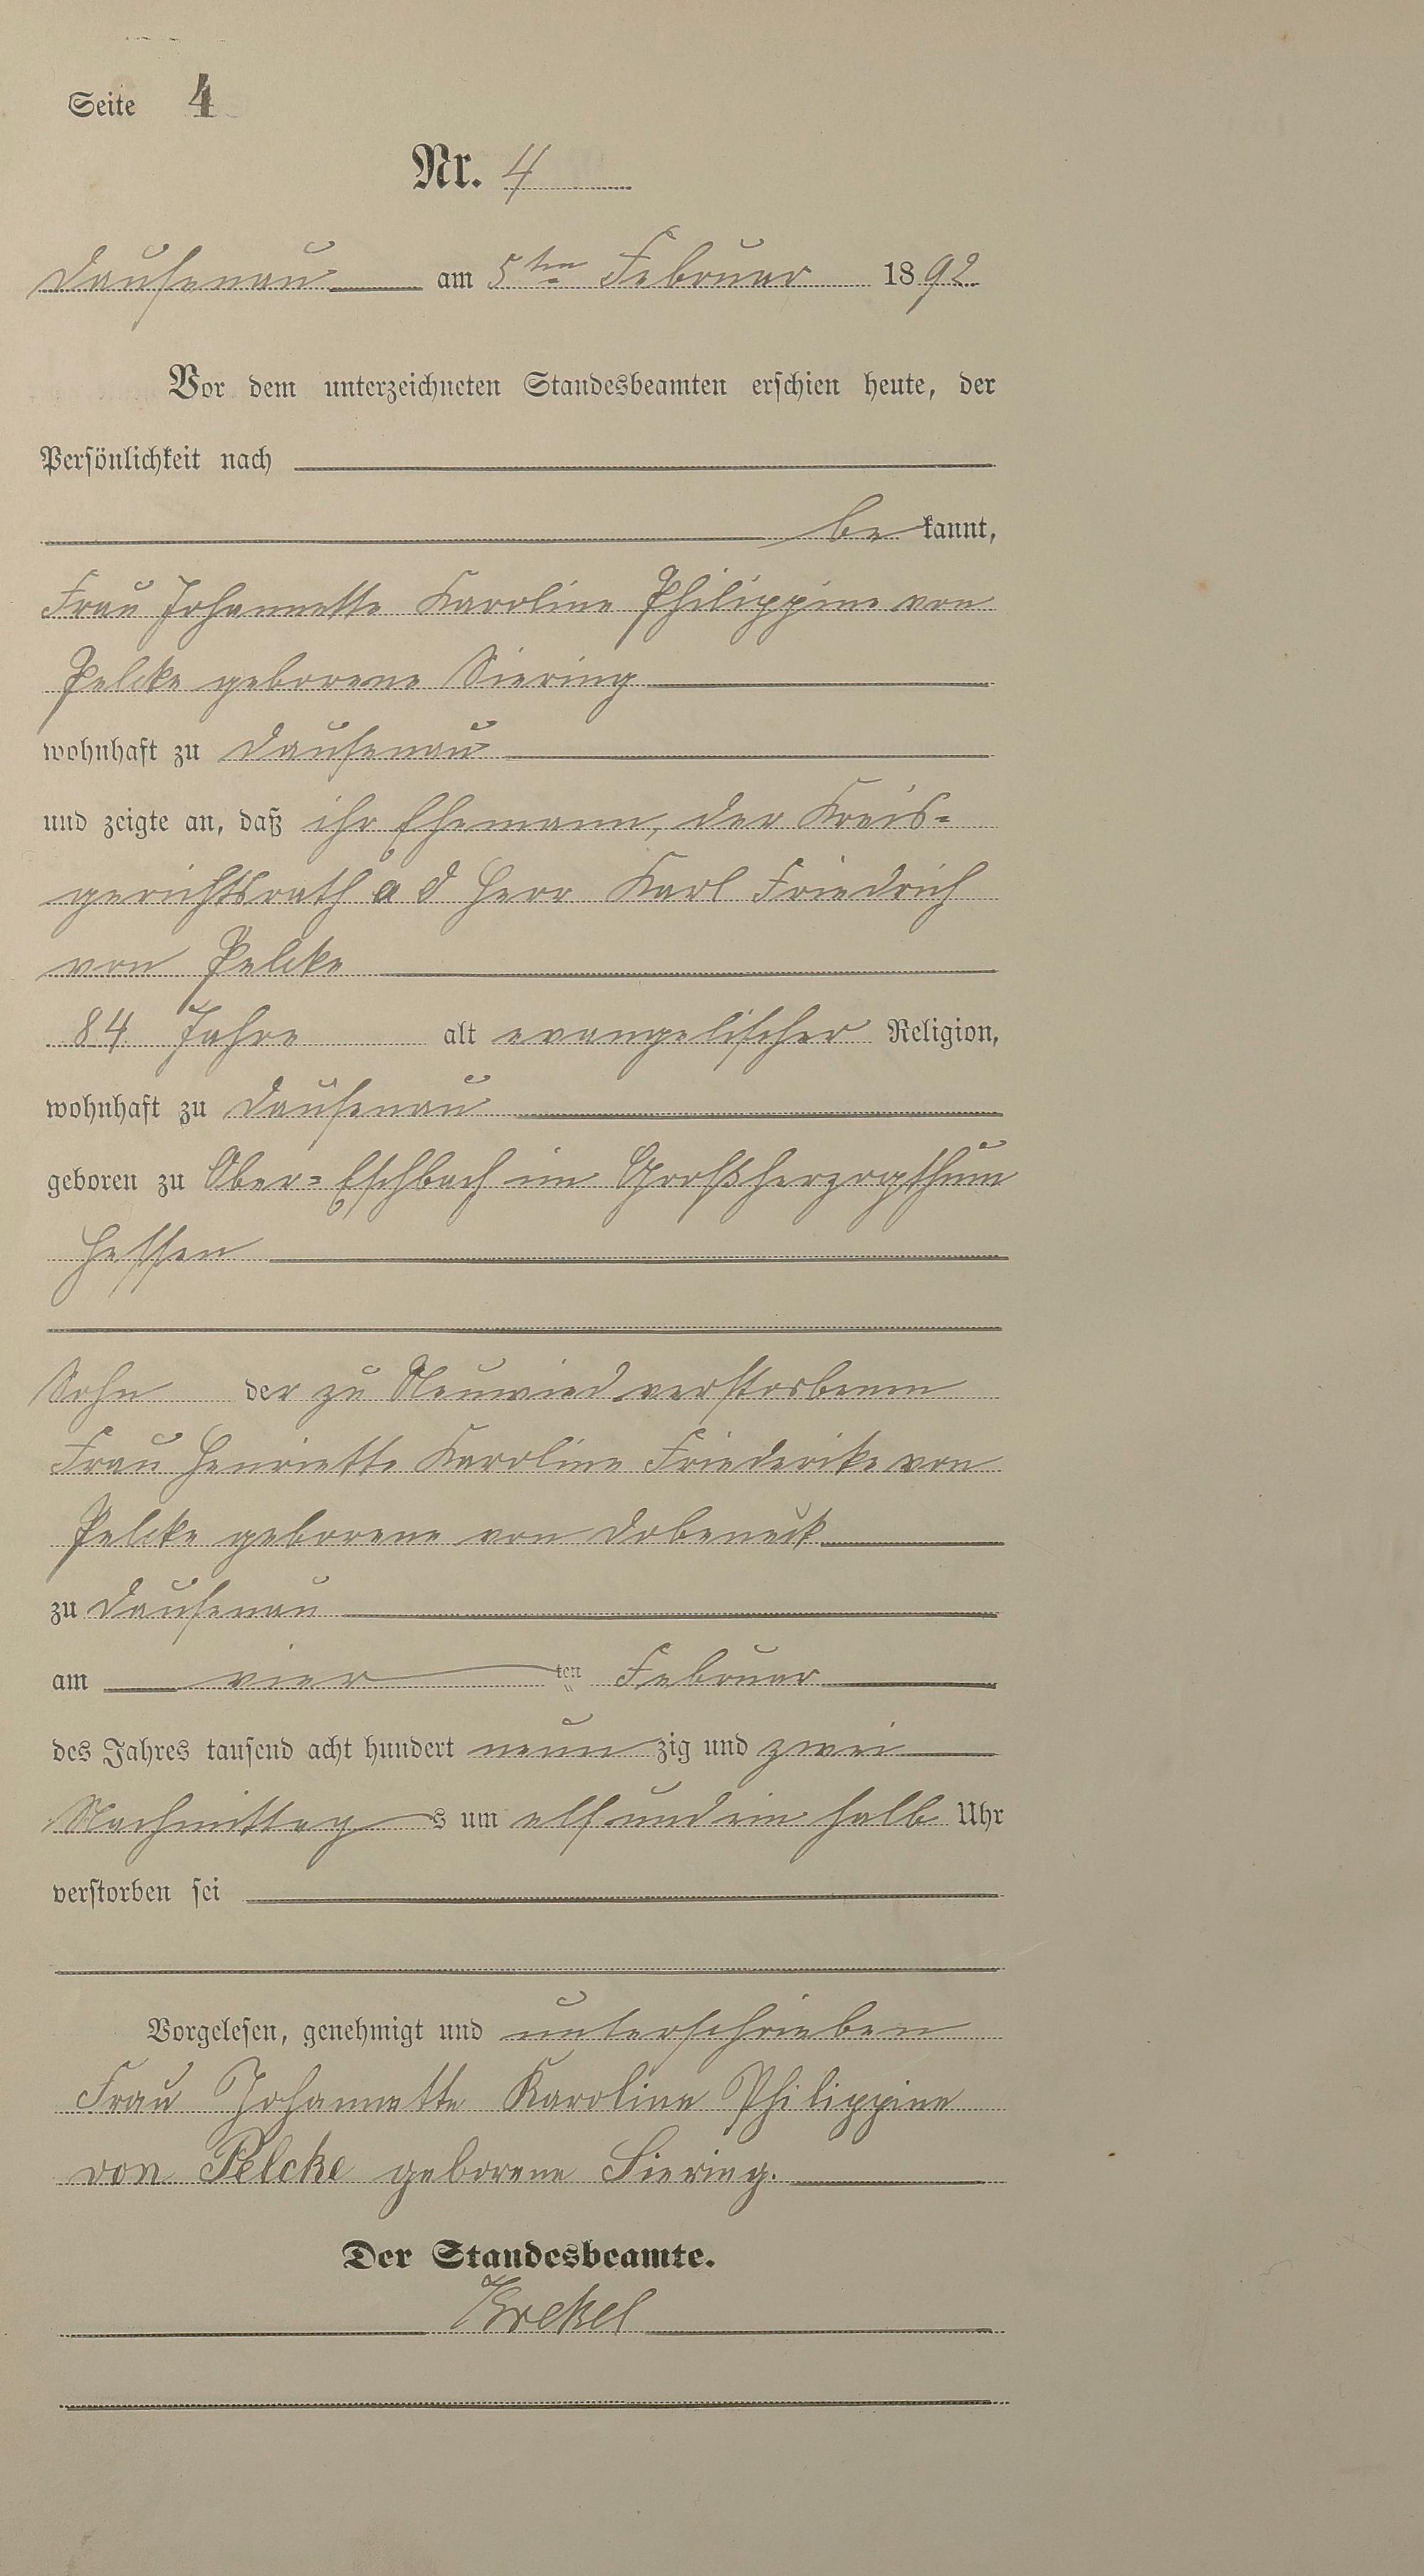 Seite 4
Nr. 4
Dausenau am 5ten Februar 1892
Vor dem unterzeichneten Standesbeamten erschien heute, der
Persönlichkeit nach
bekannt,
Frau Johannette Karoline Philippine von
Pelcke geborene Siering
wohnhaft zu Dausenau
und zeigte an, daß ihr Ehemann, der Kreis-
gerichtsrath a d Herr Karl Friedrich
von Pelcke
84 Jahre alt evangelischer Religion,
wohnhaft zu Dausenau
geboren zu Ober-Eschbach im Großherzogthum
Hessen
Sohn der zu Neuwied verstorbenen
Frau Henriette Karoline Friederike von
Pelcke geborene von Dobeneck
zu Dausenau
am vier ten Februar
des Jahres tausend acht hundert neunzig und zwei
Nachmittags um elf und ein halb Uhr
verstorben sei
Vorgelesen, genehmigt und unterschrieben
Frau Johannette Karoline Philippine
von Pelcke geborene Siering.
Der Standesbeamte.